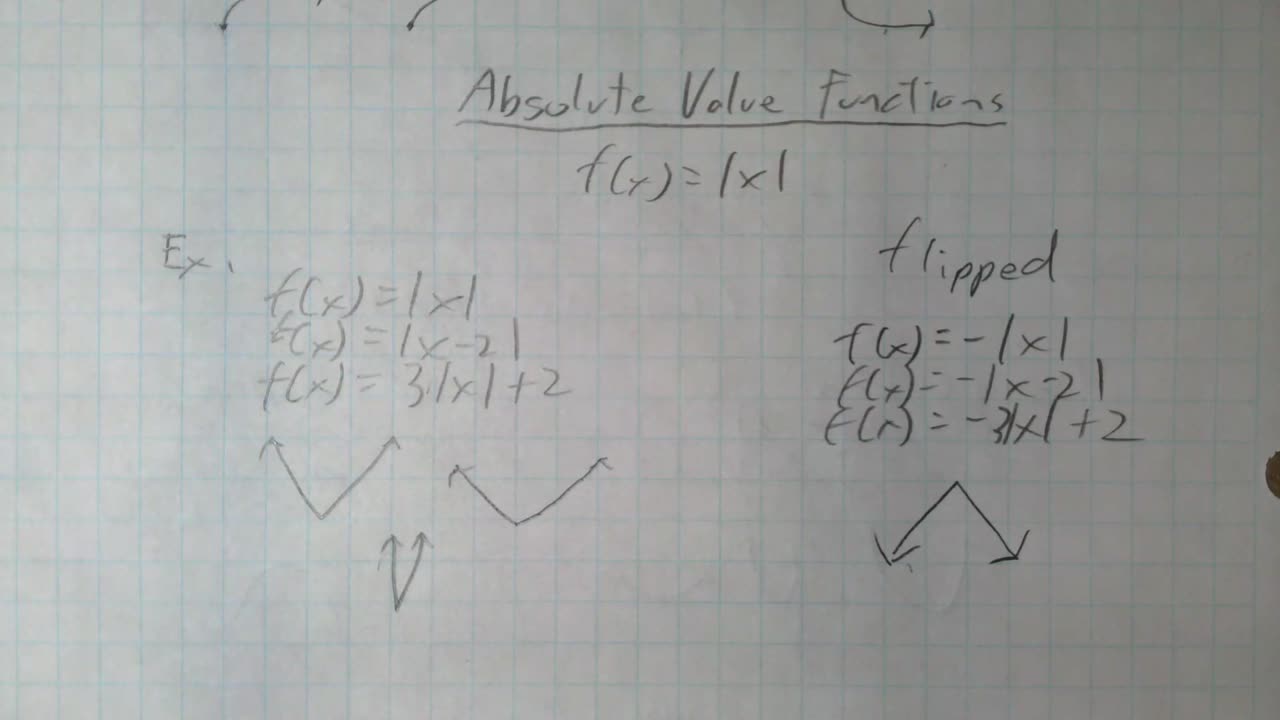 Absolute Value Functions
f(x) = |x|
Ex.
f(x) = |x|
f(x) = |x-2|
f(x) = 3|x|+2
flipped
f(x) = -|x|
f(x) = -|x-2|
f(x) = -3|x|+2